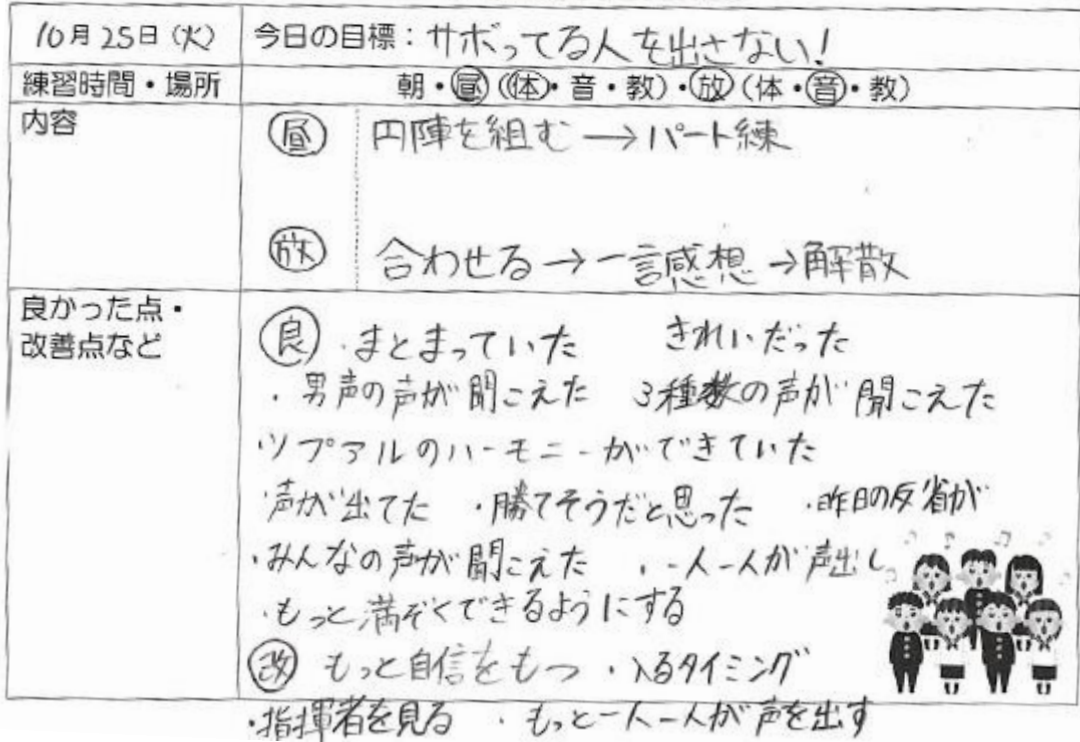 10月25日(火) 今日の目標：サボってる人を出さない！
練習時間・場所 朝・昼(体・音・教)・放(体・音・教)
内容 昼 円陣を組む→パート練
放 合わせる→一言感想→解散
良かった点・
改善点など
良 ・まとまっていた きれいだった
・男声の声が聞こえた 3種類の声が聞こえた
・ソプアルのハーモニーができていた
・声が出てた ・勝てそうだと思った ・昨日の反省が
・みんなの声が聞こえた ・一人一人が声出し
・もっと満ぞくできるようにする
改 もっと自信をもつ ・入るタイミング
・指揮者を見る ・もっと一人一人が声を出す